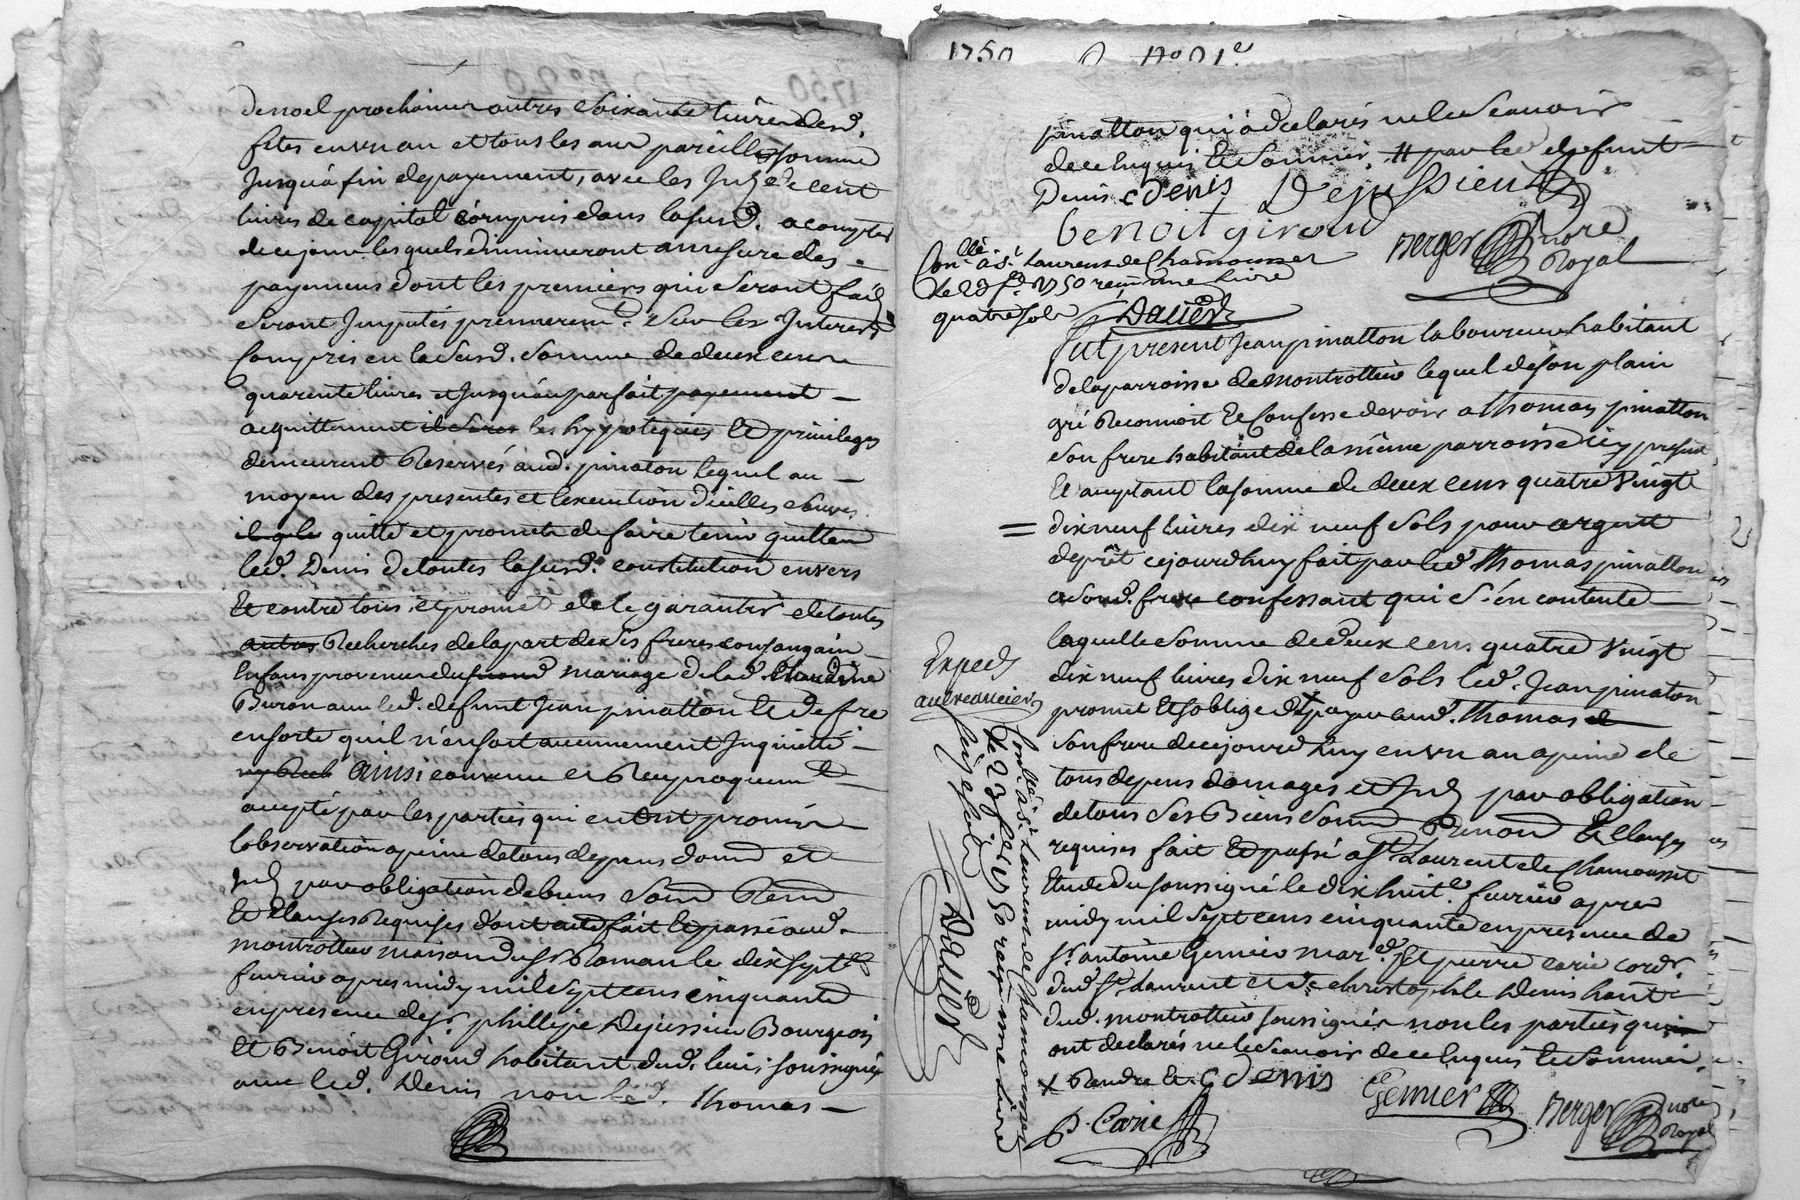 de noel prochaine autres soixante livres desd.
fetes en un an et tous les ans pareille somme
jusqu'a fin de payement, avec les jnt. de cent
livres de capital compris dans la susd. a compter
de ce jour lesquels diminueront a mesure des
payemens dont les premiers qui seront fait
seront jmputés premierem.t sur les jnterets
compris en la susd. somme de deux cens
quarente livres et jusqu'au parfait payement
acquittement il sera les hypoteques et privileges
demeurent reservés aud. pinaton lequel au
moyen des presentes et l'execution d'icelles
quitte et promet de faire tenir quitte
led. Denis de toutes la susd. constitution envers
et contre tous et promet de le garantir de toutes
autres recherches de la part de ses freres consanguin
enfans provenus du mariage de lad. Claudine
Buron avec led. defunt Jean pinatton et de fre
en sorte qu'il n'en soit aucunement jnquietté
ainsi convenu et reciproquem.t
accepté par les parties qui en ont promis
l'observation a peine de tous depens dom. et
jnt. par obligation de biens soum. ren.
et clauses requises dont acte fait et passé aud.
montrottier maison du sr Roman le dix sept.e
fevrier apres midy mil sept cens cinquante
en presence de sr. phillipe Dejussieu Bourgeois
et Benoit Giroud habitant dud. lieu soussignés
avec led. Denis non led. Thomas
1750 n° 21e
pinatton qui a declarés ne le scavoir
de ce enquis et sommé # par led defunt
Denis C Denis Dejussieu
benoit giroud
Berger nore
Royal
Con.llé a St. Laurens de Chamousset
le 23 f. 1750 recu une livre
quatre sols
Dauier
fut present Jean pinatton laboureur habitant
de la parroisse de montrottier lequel de son plain
gré reconnoit et confesse devoir a thomas pinatton
son frere habitant de la même parroisse icy present
et acceptant la somme de deux cens quatre vingt
= dix neuf livres dix neuf sols pour argent
de prêt cejourdhuy fait par led. Thomas pinatton
a sond. frere confessant qui s'en contente
laquelle somme de deux cens quatre vingt
dix neuf livres dix neuf sols led. Jean pinaton
promet et s'oblige de payer aud. Thomas
son frere de cejourdhuy en un an a peine de
tous depens domages et jnt. par obligation
de tous ses biens soum. renon. et clauses
requises fait et passé a St. Laurent de Chamousset
etude du soussigné le dix huit.e fevrier apres
midy mil sept cens cinquante en presence de
sr. antoine Gemier mar.d et pierre carie cord.r
dud. St. Laurent et de christophle Denis hant
dud. montrottier soussignés non les parties qui
ont declarés ne le scavoir de ce enquis et sommé
+ rendre et. C Denis
Gemier
P. Carie
Berger nore
Royal
Exped.
au creancier
seize sols
Con.llé a St. Laurens de Chamousset
le 23 fev. 1750 recu une livre
Dauier